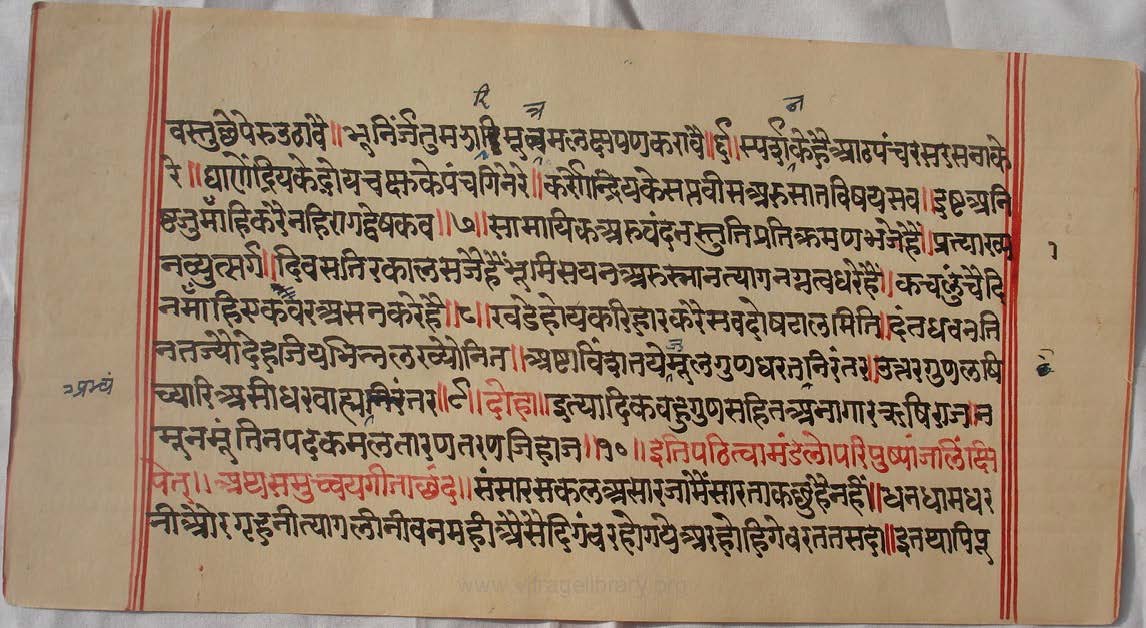 वस्तुछेपेरुउठावै॥ भूनिर्जंतुमझारि मूत्रमलक्षपणकरावै॥ ६॥ स्पर्शनकेहैंआठपंचरसरसनाके
रे॥ घ्राणेंद्रियकेदोयचक्षुकेपंचगिनेरे॥ कर्णेन्द्रियकेसप्तवीसअरुसातविषयसव॥ इष्टअनि
ष्टजुमाँहिकरैनहिरागद्वेषकव॥ ७॥ सामायिकअरुवंदनस्तुतिप्रतिक्रमणभजेहै॥ प्रत्याख्या
नव्युत्सर्ग॥ दिवसतिरकालसजैहैं भूमिसयनअरुस्नानत्यागनग्नत्वधरेहैं॥ कचलुंचैदि
नमाँहिएकवरअसनकरेहै॥ ८॥ खडेहोयकरिहारकरैसवदोषटालमिति॥ दंतधवनति
नतज्यौदेहजियभिन्नलख्योनित॥ अष्टाविंशतयेमूलगुणधरतनिरंतर॥ उत्तरगुणलषि
च्यारिअसीधरवाह्य र॥ ९॥ दोहा॥ इत्यादिकवहुगुणसहितअनागारऋषिराज॥ न
मूनमूंतिनपदकमलतारणतरणजिहाज॥ १०॥ इतिपठित्वामंडलोपरिपुष्पांजलिंक्षि
पेत्॥ अष्टासमुच्चयगीताछंद॥ संसारसकलअसारजामैंसारताकछुहैनहीं॥ धनधामधर
नीऔरगृहनीत्यागलीनीवनमही॥ ऐसेदिगंवरहोगये अरहोहिगेवरततसदा॥ इतथापि
www.vitragelibrary.org